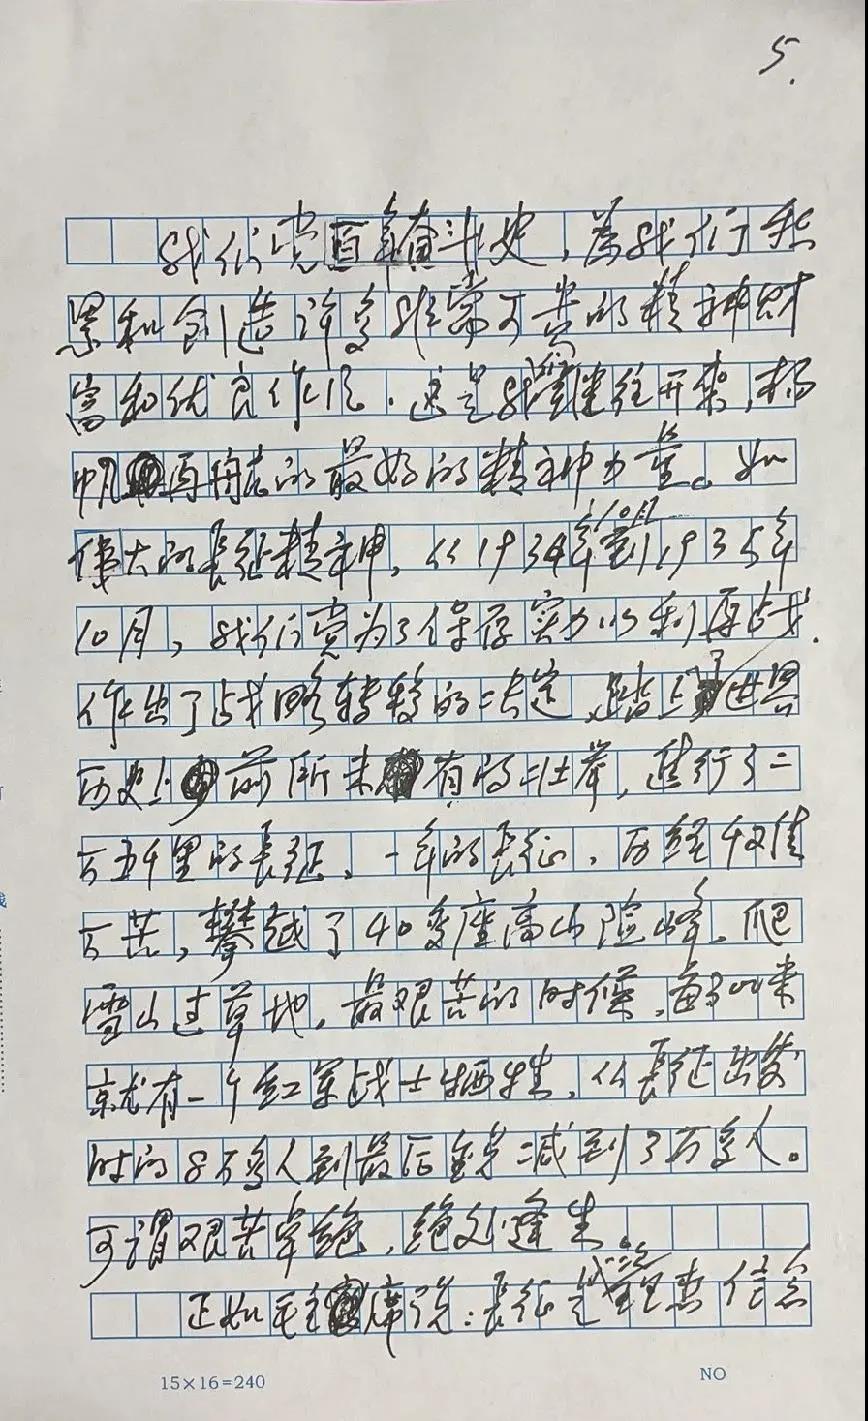 5.
我们党百年奋斗史，为我们积
累和创造许多非常可贵的精神财
富和优良作风．这是我们继往开来，扬
帆再启的最好的精神力量。如
伟大的长征精神，从1934年10月到1935年
10月，我们党为了保存实力以利再战．
作出了战略转移的决定、踏上了世界
历史上前所未有的壮举，进行了二
万五千里的长征、一年的长征，历经千难
万苦，攀越了40多座高山险峰。爬
雪山过草地，最艰苦的时候，每300米
就有一个红军战士牺牲、从长征出发
时的8万多人到最后锐减到3万多人。
可谓艰苦卓绝，绝处逢生。
正如毛主席说：长征是信念
15×16=240
NO